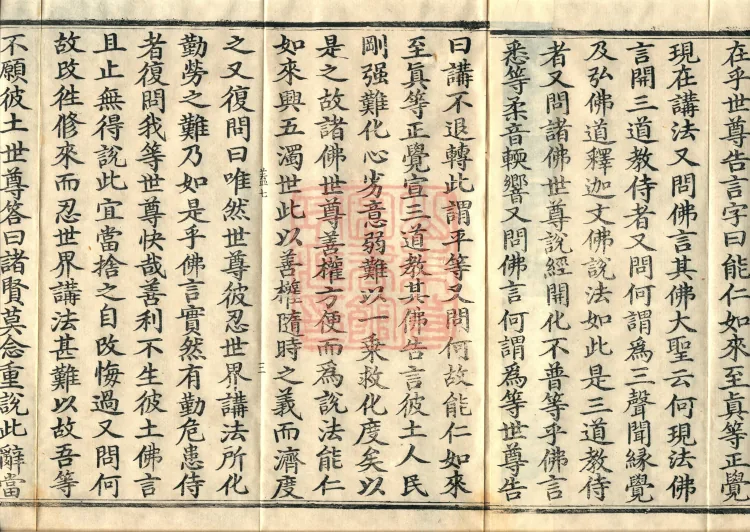 在乎世尊告言字曰能仁如來至真等正覺
現在講法又問佛言其佛大聖云何現法佛
言開三道教侍者又問何謂為三聲聞緣覺
及弘佛道釋迦文佛說法如此是三道教侍
者又問諸佛世尊說經開化不普等乎佛言
悉等柔音軟響又問佛言何謂為等世尊告
曰講不退轉此謂平等又問何故能仁如來
至真等正覺宣三道教其佛告言彼土人民
剛强難化心劣意弱難以一乘救化度矣以
是之故諸佛世尊善權方便而為說法能仁
如來興五濁世此以善權隨時之義而濟度
之又復問曰唯然世尊彼忍世界講法所化
勤勞之難乃如是乎佛言實然有勤危患侍
者復問我等世尊快哉善利不生彼土佛言
且止無得說此宜當捨之自改悔過又問何
故改往修來而忍世界講法甚難以故吾等
不願彼土世尊答曰諸賢莫念重說此辭當
三